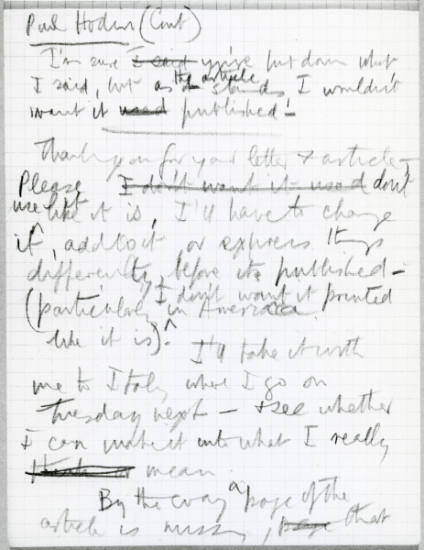 Paul Hodin (Cont)
I'm sure I said you've put down what
I said, but as the article stands, I wouldn't
want it used published -
Thank you for your letter & article -
Please I don't want it used don't
use it like it is, I'll have to change
it, add to it or express things
differently, before its published -
(particularly, I don't want it printed in America
like it is). I'll take it with
me to Italy where I go on
Tuesday next - & see whether
I can make it into what I really
mean
By the way a page of the
article is missing, page that